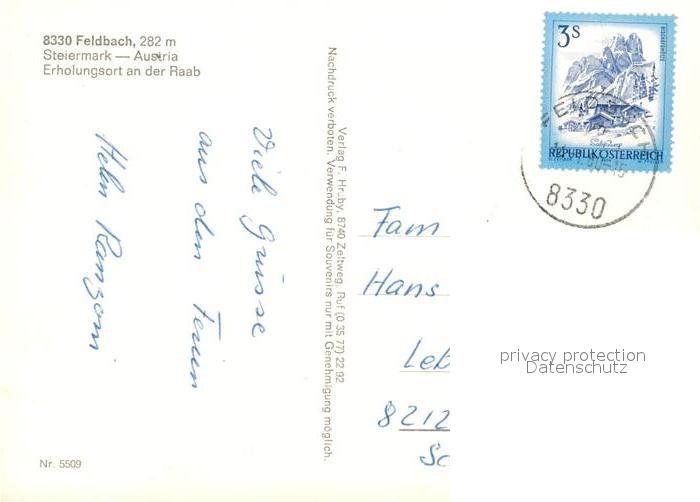 8330 Feldbach, 282 m
Steiermark — Austria
Erholungsort an der Raab
Viele Grüsse
aus den Ferien
Nr. 5509
Verlag F. Hruby, 8740 Zeltweg. Ruf (0 35 77) 22 92
Nachdruck verboten. Verwendung für Souvenirs nur mit Genehmigung möglich.
3S
REPUBLIK ÖSTERREICH
8330
Fam
Hans
Leb
8212
Sc
privacy protection
Datenschutz